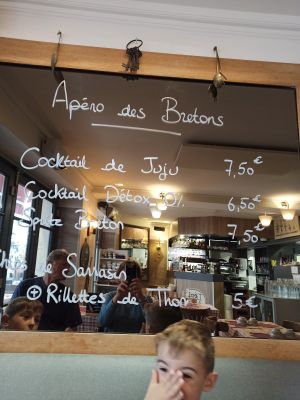 Apéro des Bretons
Cocktail de Juju 7,50€
Cocktail Détox 0% 6,50€
Spritz Breton 7,50€
de Sarrasin
⊕ Rillettes de Thon 5€